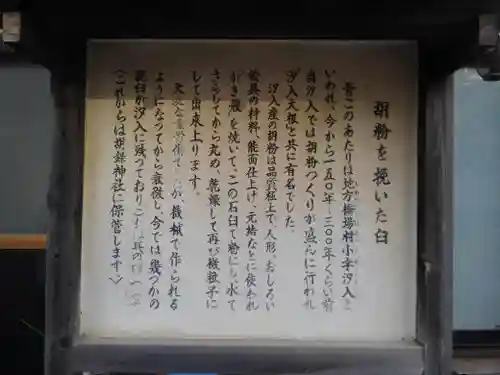 胡粉を挽いた臼
昔このあたりは地方橋場村小字汐入と
いわれ、今から一五〇年～三〇〇年くらい前
当汐入では胡粉つくりが盛んに行われ
汐入大根と共に有名でした。
汐入産の胡粉は品質極上で人形、おしろい
絵具の材料、能面仕上げ、元結などに使われ
かき殻を焼いて、この石臼で粉にし水で
さらしてから丸め、乾燥して再び微粒子に
して出来上ります。
大変な
機械で作られる
ようになってから衰微し今では幾つかの
挽臼が汐入に残っており
（これからは胡録神社に保管します。）